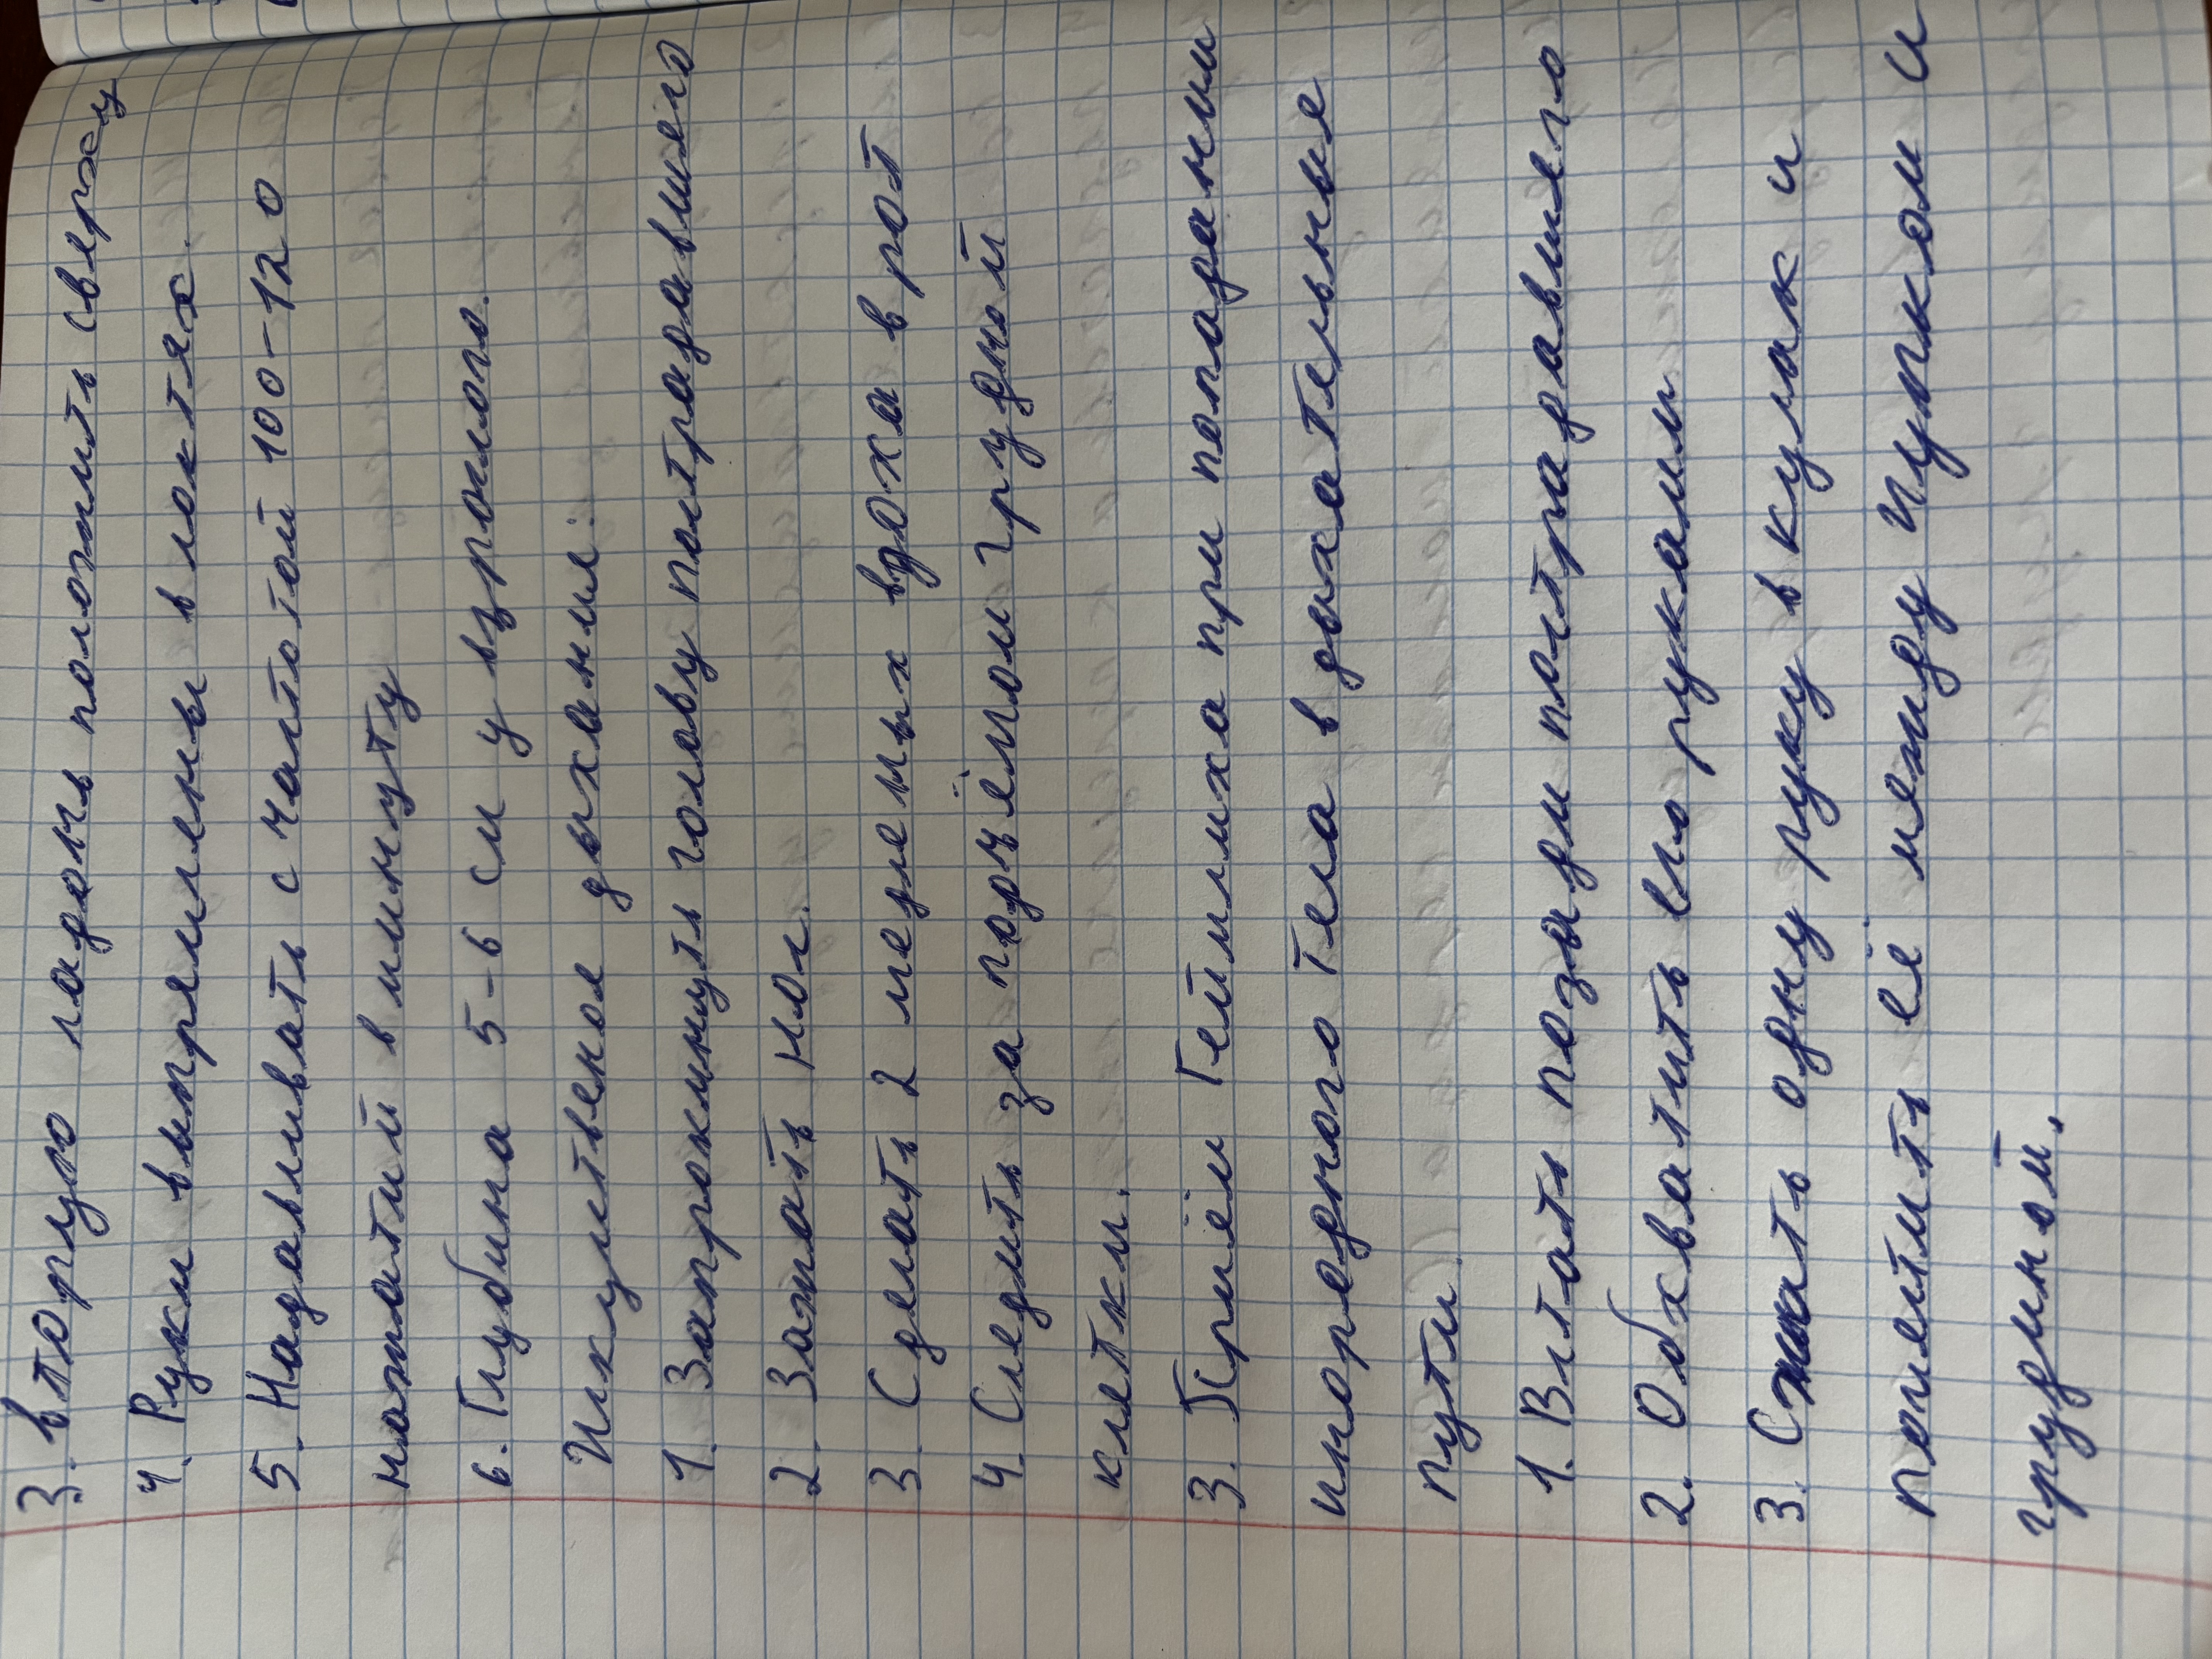 3. вторую ладонь положить сверху
4. Руки выпрямлены в локтях.
5. Надавливать с частотой 100-120
нажатий в минуту
6. Глубина 5-6 см у взрослого.
Искуственое дыхание:
1. Запрокинуть голову пострадавшего
2. Зажать нос.
3. Сделать 2 медленых вдоха в рот
4. Следить за подъёмом грудной
клетки.
3. Приём Геймлиха при попадании
инородного тела в дыхательные
пути.
1. Встать позади пострадавшего
2. Обхватить его руками
3. Сжать одну руку в кулак и
поместить её между пупком и
грудиной.